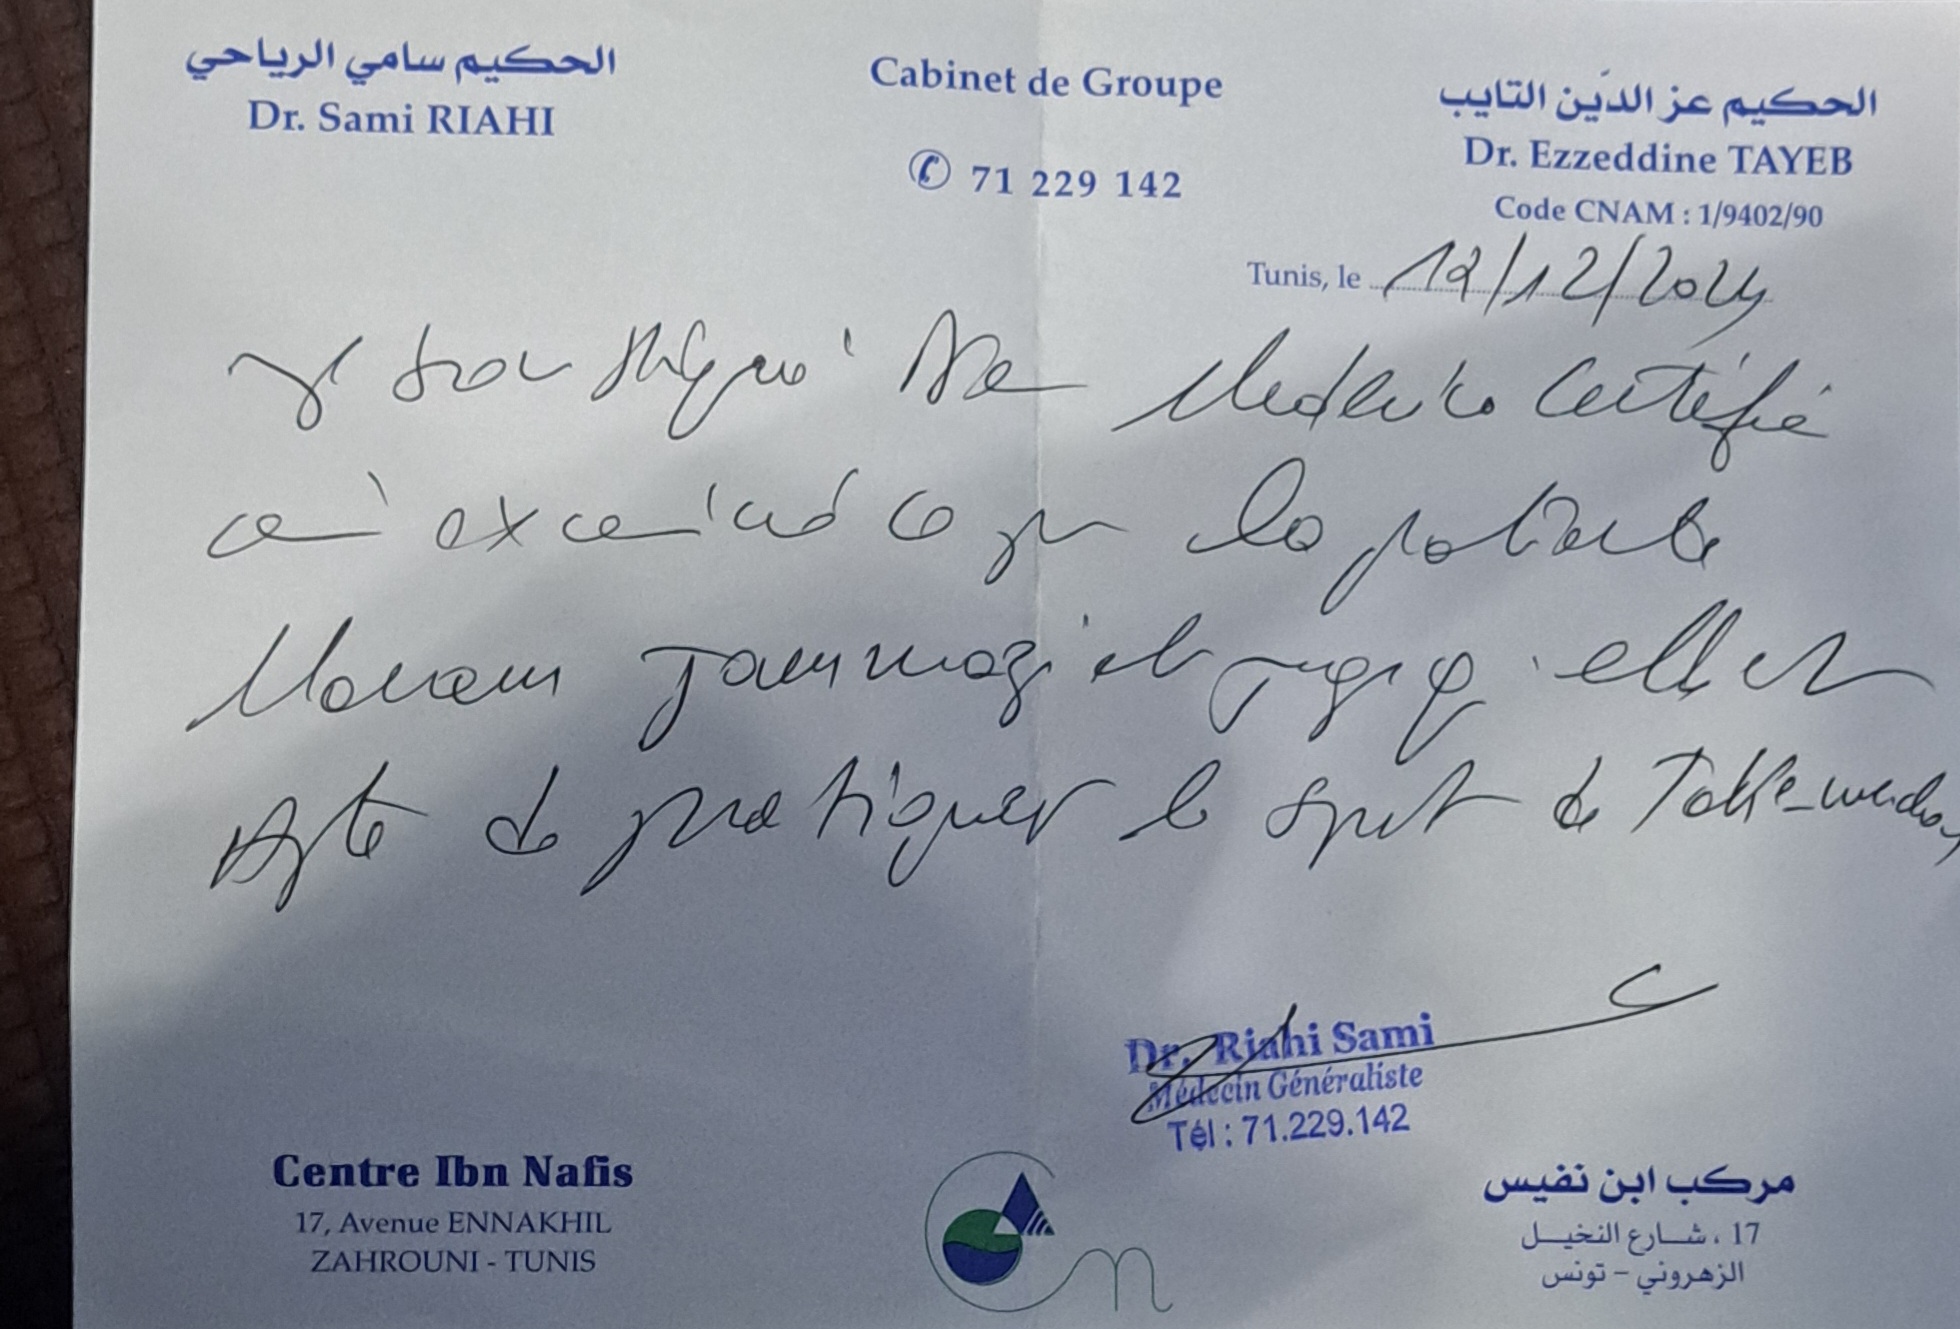 الحكيم سامي الرياحي
Dr. Sami RIAHI
Cabinet de Groupe
✆ 71 229 142
الحكيم عز الدَين التايب
Dr. Ezzeddine TAYEB
Code CNAM : 1/9402/90
Tunis, le 19/12/2024
Je soussigné Certifié
avoir examiné ce jour la patiente
Mariem elle est
Apte de pratiquer le sport de
Dr. Riahi Sami
Médecin Généraliste
Tél : 71.229.142
Centre Ibn Nafis
17, Avenue ENNAKHIL
ZAHROUNI - TUNIS
مركب ابن نفيس
17 ، شارع النخيل
الزهروني – تونس